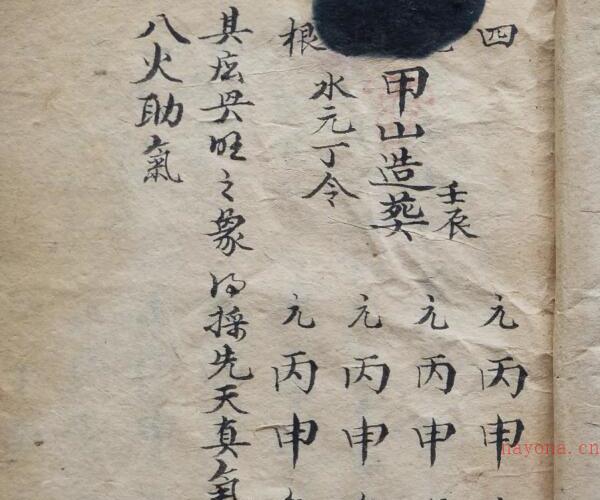 四
元丙申
壬辰
元丙申
甲山造葬
元丙申
水元丁令
根
元丙申
其旺之象得採先天真氣
八火助氣
nayona.cn